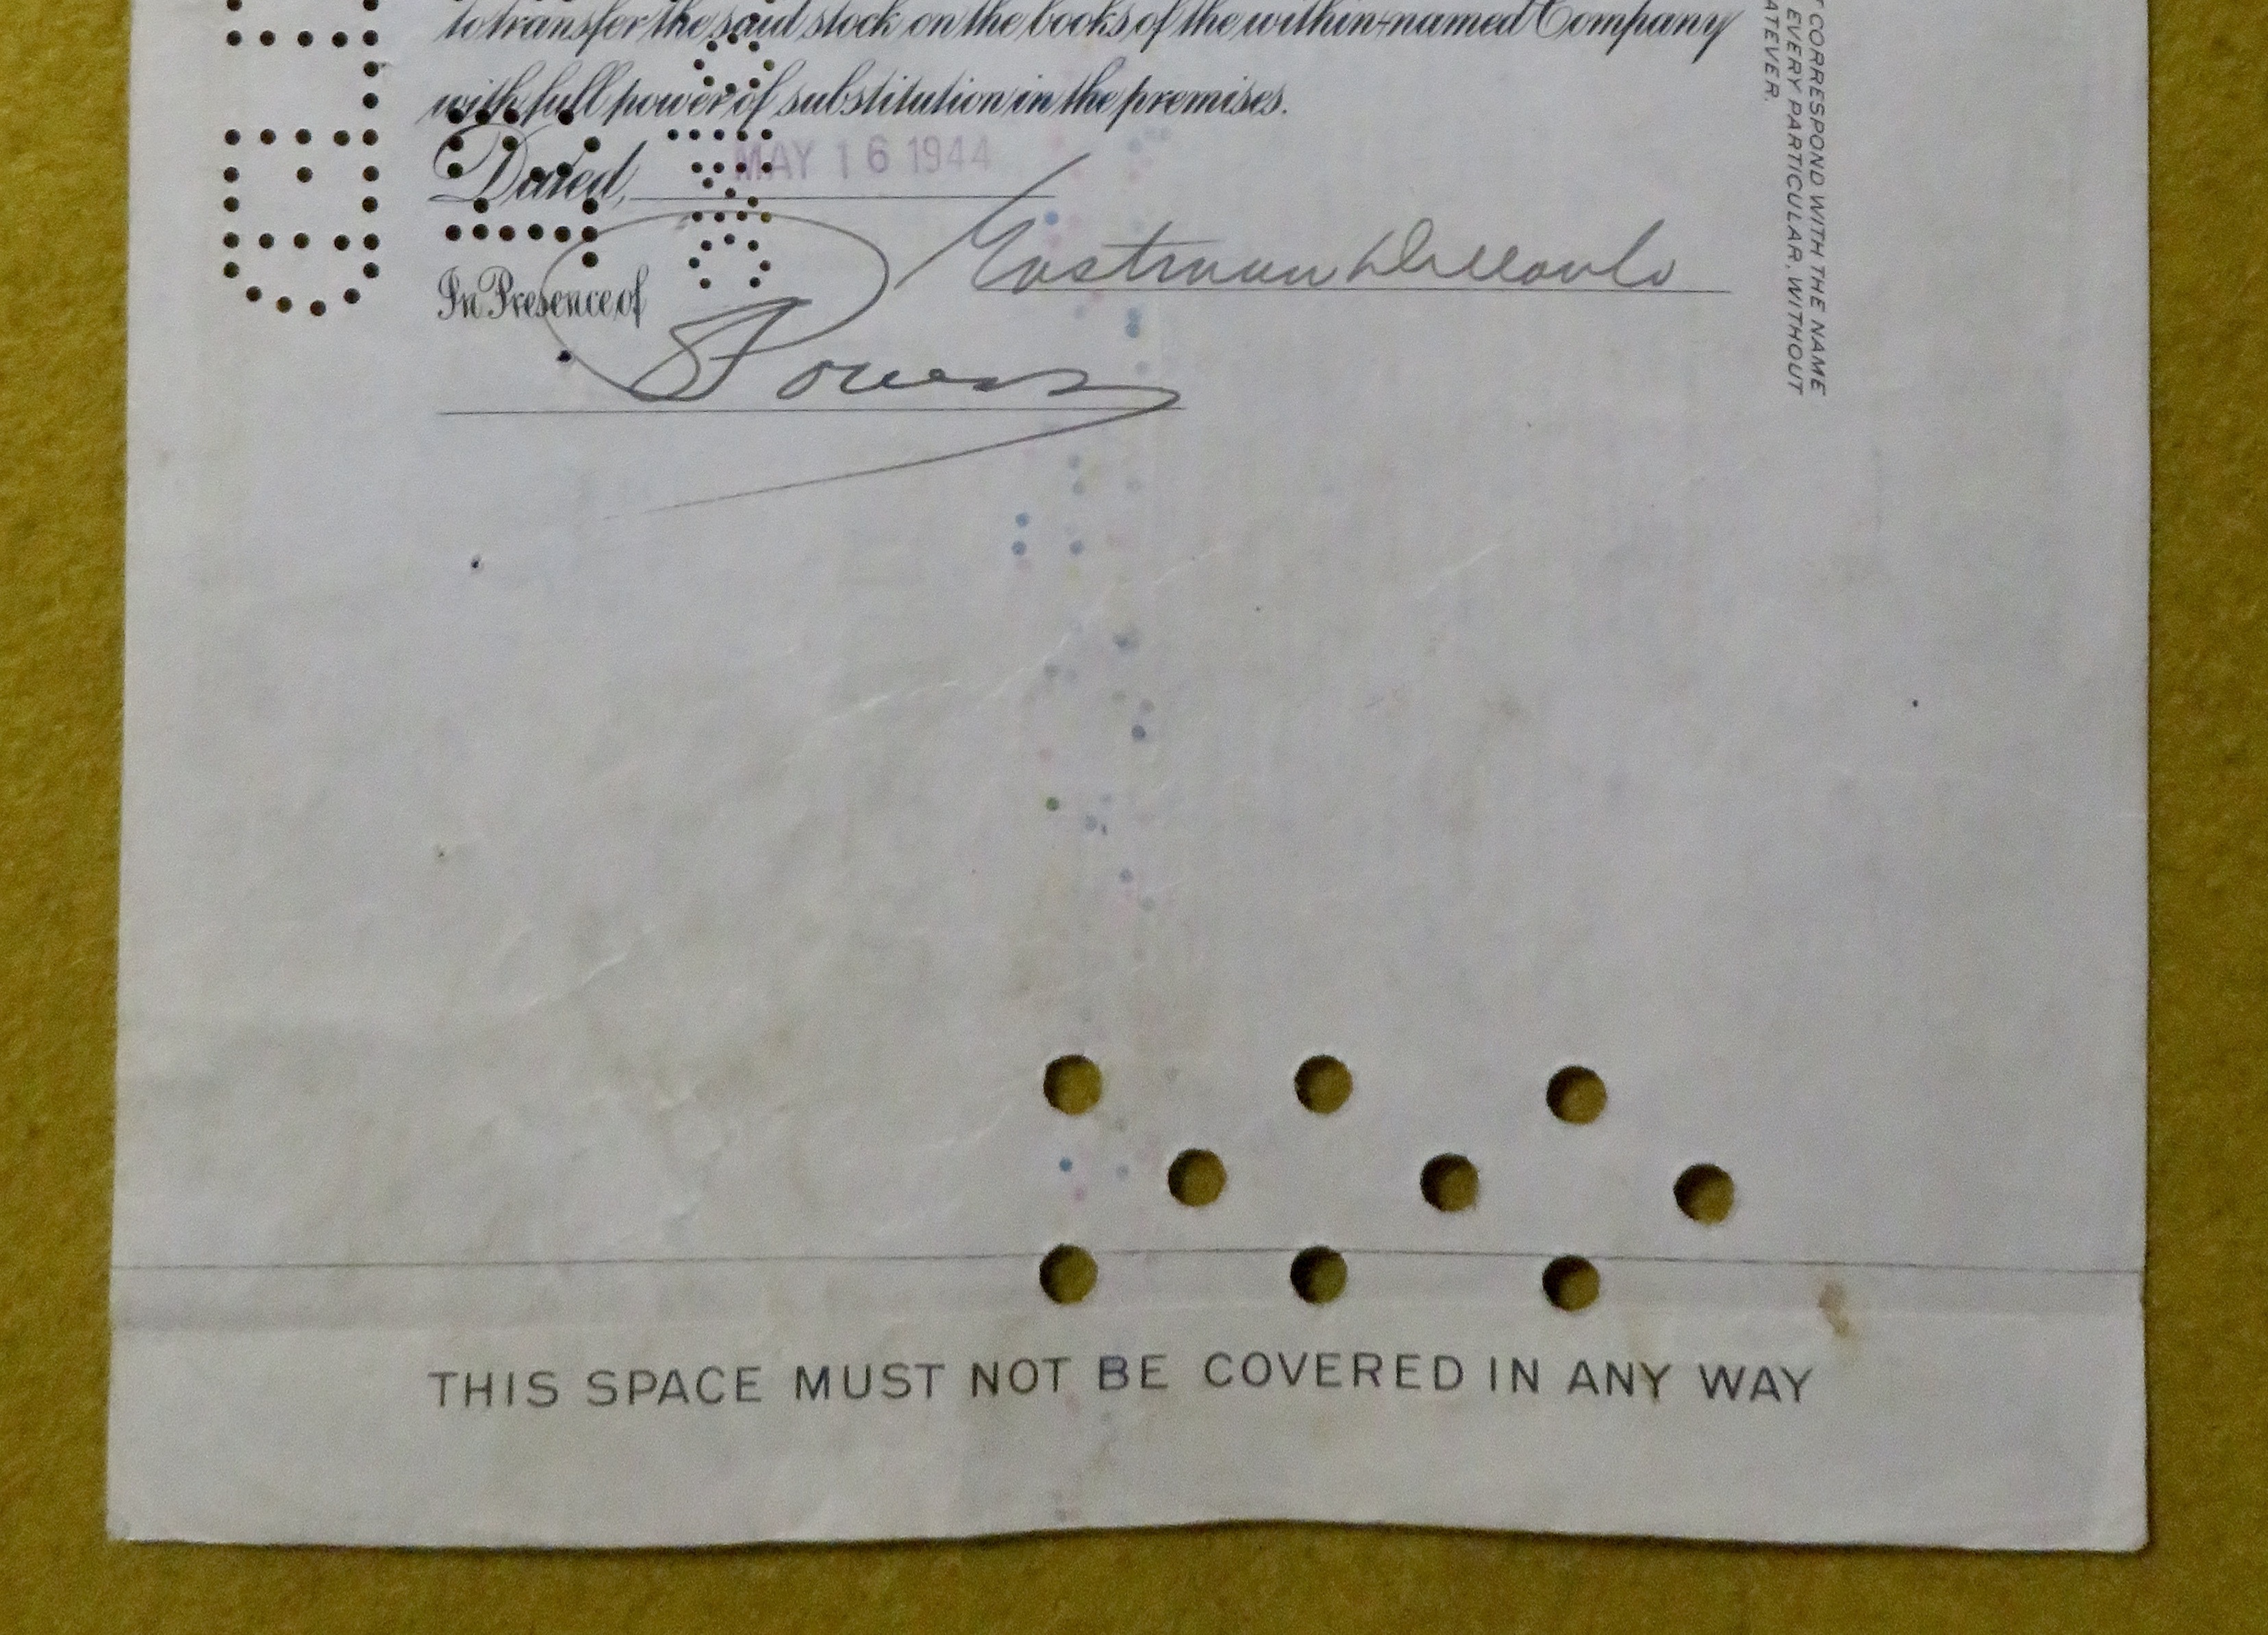 to transfer the said stock on the books of the within-named Company
with full power of substitution in the premises.
Dated, MAY 16 1944
Eastman Dillon & Co
In Presence of
Powers
CORRESPOND WITH THE NAME
EVERY PARTICULAR, WITHOUT
ATEVER.
THIS SPACE MUST NOT BE COVERED IN ANY WAY